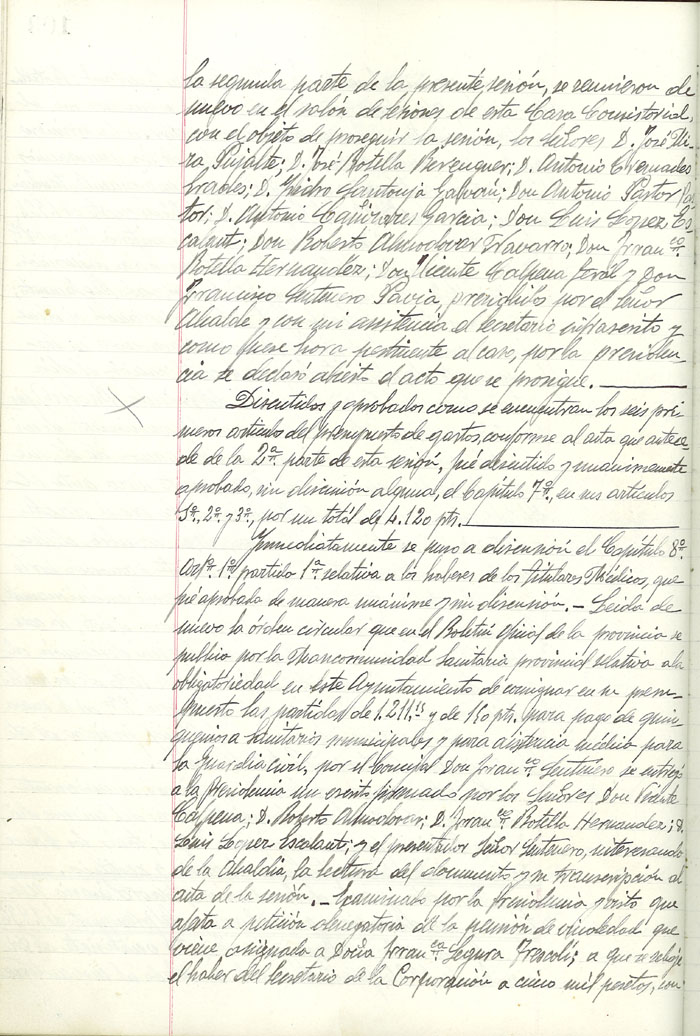 la segunda parte de la presente sesión, se reunieron de
nuevo en el salón de sesiones de esta Casa Consistorial,
con el objeto de proseguir la sesión, los señores D. José Mi-
ra Pujalte; D. José Botella Berenguer; D. Antonio Cremades
D. Pedro Santonja Galvañ; Don Antonio Pastor Pas-
tor; D. Antonio García; Don Luis López Es-
calant; Don Roberto Almodovar Navarro; Don Francº.
Botella Hernandez; Don Vicente Calpena y Don
Francisco Senterero Pavia, presididos por el Señor
Alcalde y con mi asistencia el secretario infrascrito y
como fuese hora pertinente al caso, por la presiden-
cia se declaró abierto el acto que se prosigue.
Discutidos y aprobados como se encuentran los seis pri-
meros artículos del presupuesto de gastos, conforme al acta que antece-
de de la 2ª. parte de esta sesión, fué discutido y unánimemente
aprobado, sin discusión alguna, el Capítulo 7º., en sus artículos
1º. 2º. y 3º., por un total de 4.120 pts.
Inmediatamente se puso a discusión el Capítulo 8º.
Artº. 1º. partida 1ª. relativa a los haberes de los titulares Médicos, que
fué aprobada de manera unánime y sin discusión. - Leida de
nuevo la órden circular que en el Boletín Oficial de la provincia se
publica por la Mancomunidad Sanitaria provincial relativa a la
obligatoriedad en este Ayuntamiento de consignar en su presu-
puesto las partidas de 1.211, y de 150 pts. para pago de quin-
quenios a sanitarios municipales y para asistencia médica para
la Guardia civil, por el Concejal Don Francº. Senterero se entregó
a la Presidencia un escrito firmado por los Señores Don Vicente
Calpena; D. Roberto Almodovar; D. Francº. Botella Hernandez; D.
Luis López Escalant; y el presentador Señor Senterero, interesando
de la Alcaldia, la lectura del documento y su transcripción al
acta de la sesión. - Examinado por la Presidencia y visto que
afecta a petición de la pensión de viudedad que
viene asignada a Doña Francª. Segura Frescoli; a que se rebaje
el haber del Secretario de la Corporación a cinco mil pesetas, con-